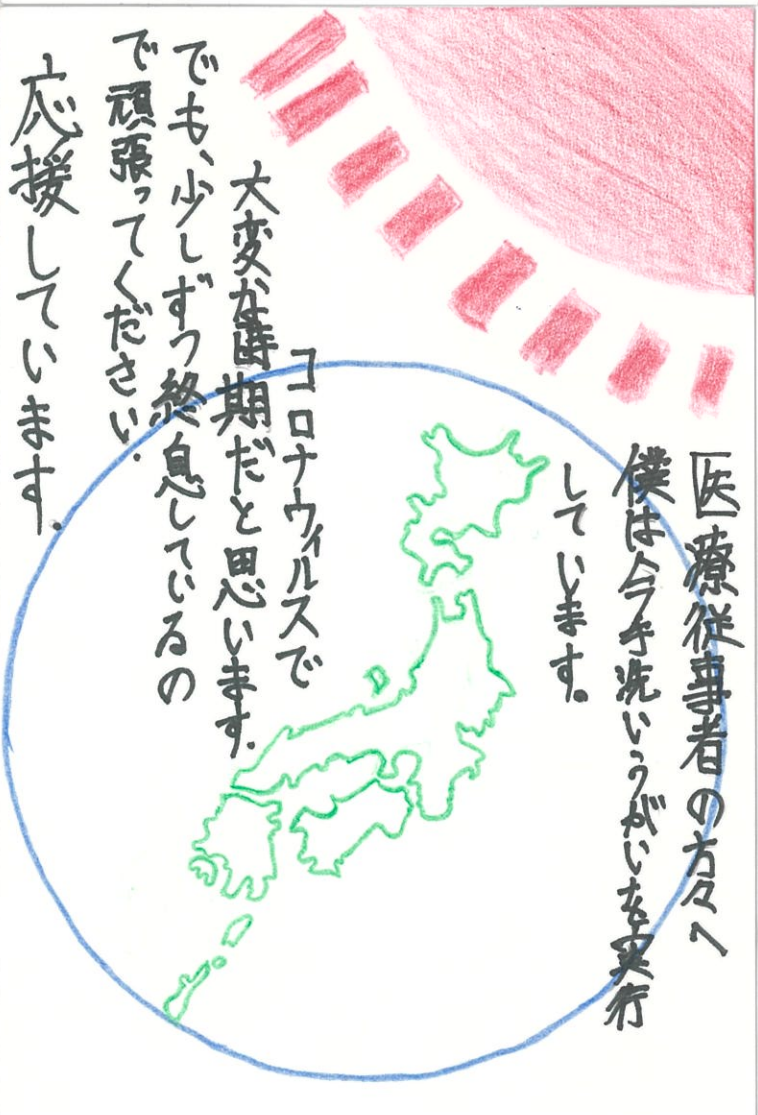 医療従事者の方々へ
僕は今手洗いうがいを実行
しています。
コロナウィルスで
大変な時期だと思います。
でも、少しずつ終息しているの
で頑張ってください。
応援しています。